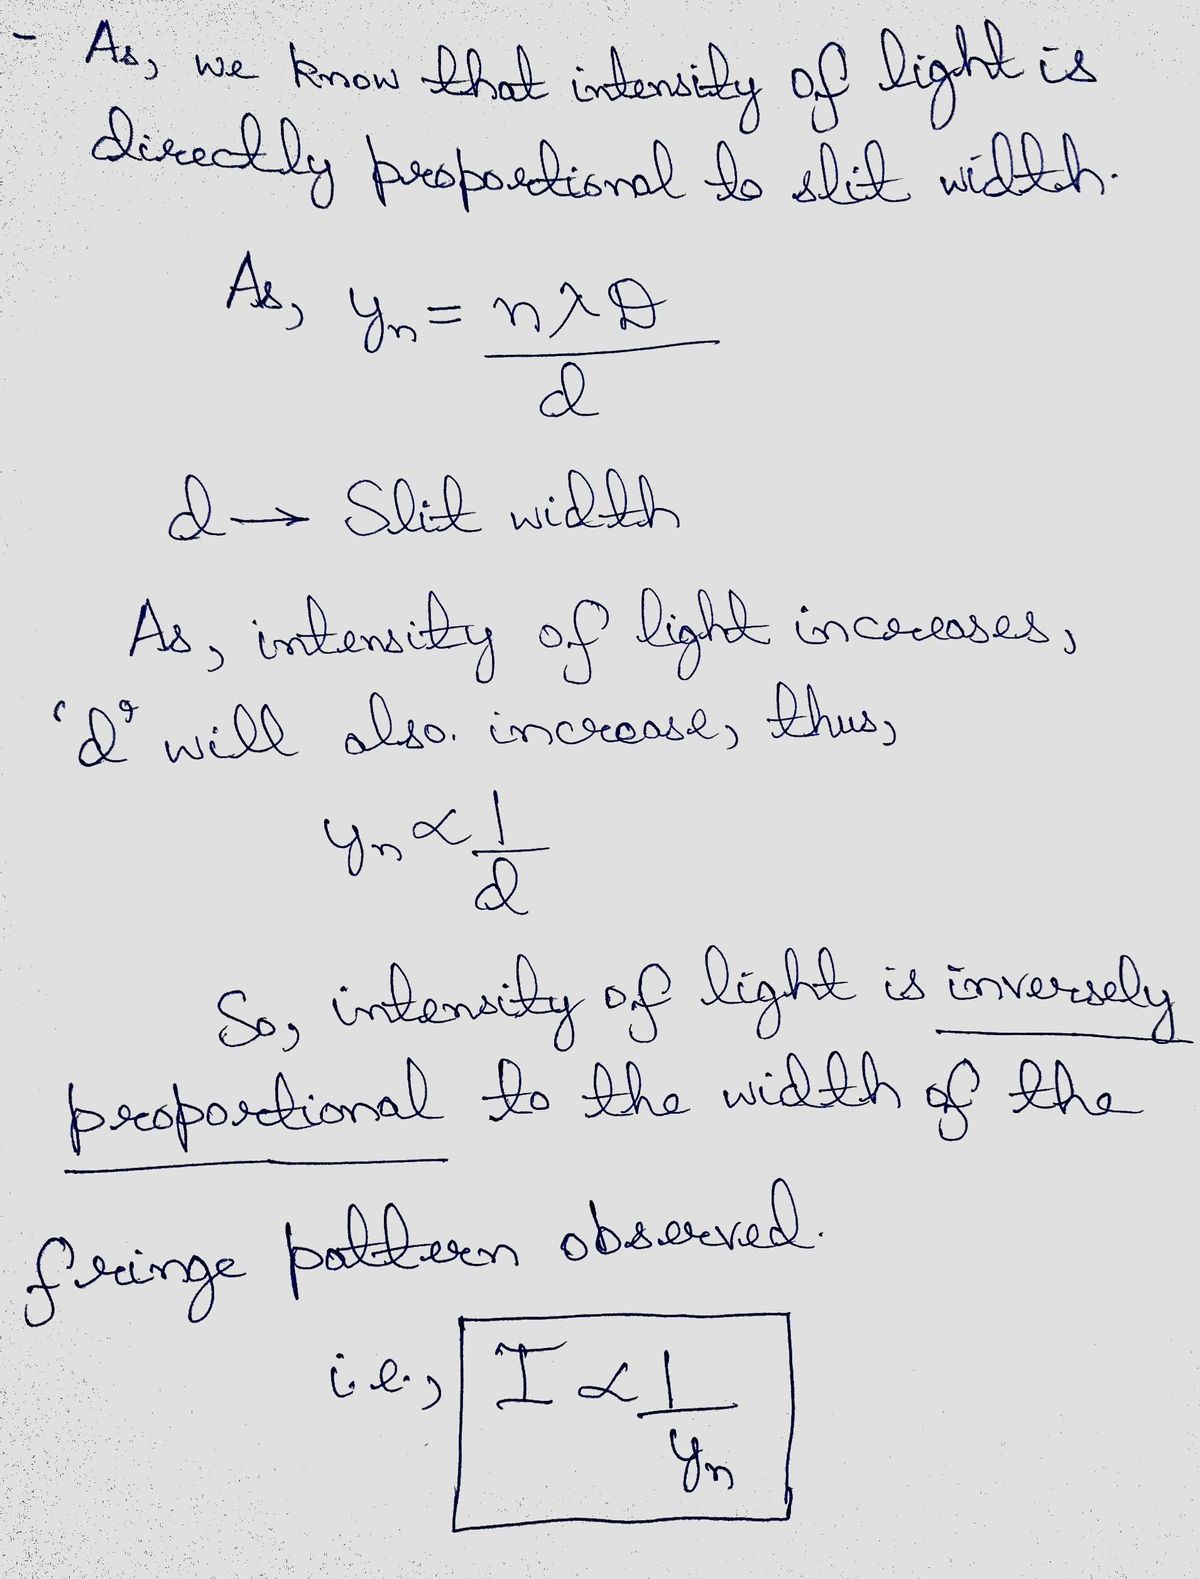 - As, we know that intensity of light is
directly proportional to slit width.
As, yₙ = nλD
d
d → Slit width
As, intensity of light increases,
'd' will also. increase, thus,
yₙ ∝ 1
d
So, intensity of light is inversely
proportional to the width of the
fringe pattern observed.
i.e., I ∝ 1
yₙ